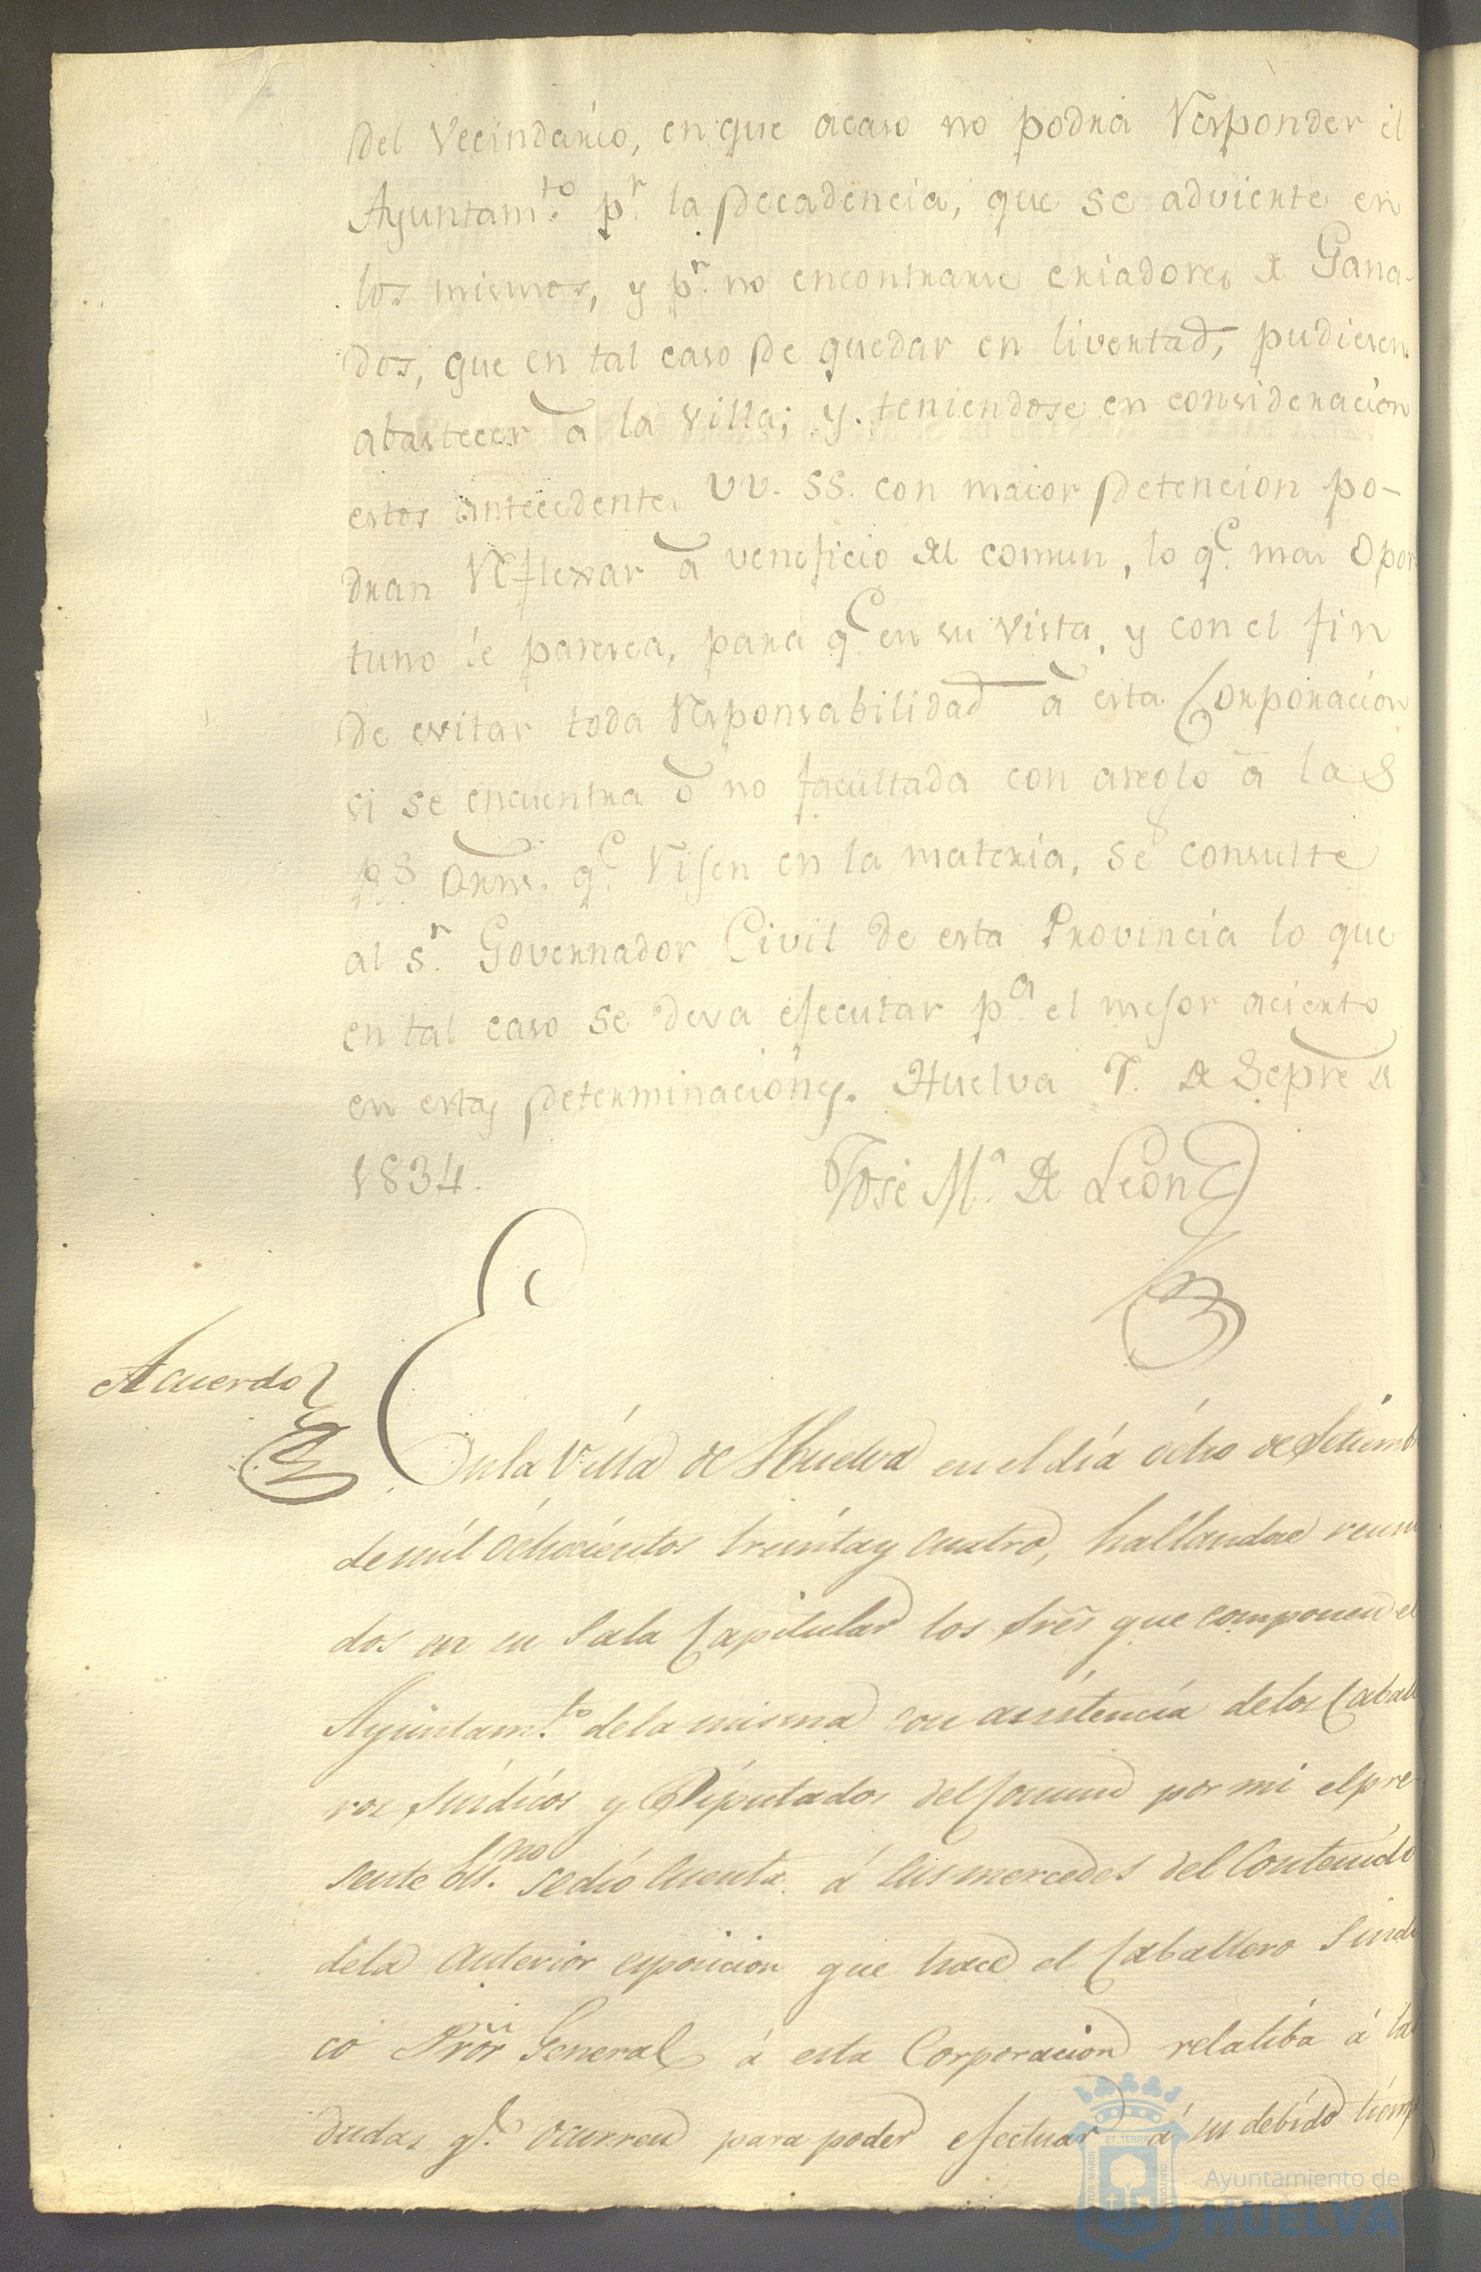 del Vecindario, en que acaso no podria Responder el
Ayuntam.to p.r la decadencia, que se advierte en
los mismos, y p.r no encontrarse criadores de Gana-
dos, que en tal caso de quedar en livertad, pudiesen
abastecer à la villa; y teniendose en consideracion
estos antecedentes VV. SS. con maior detencion po-
dran Reflexar à veneficio del comun, lo q.e mas opor
tuno le paresca, para q.e en su vista, y con el fin
de evitar toda Responsabilidad à esta Corporacion
si se encuentra ò no facultada con areglo à las
r.s Orns. q.e Rijen en la materia, se consulte
al S.r Governador Civil de esta Provincia lo que
en tal caso se deva ejecutar p.a el mejor acierto
en estas determinaciones. Huelva 7. de Sepre de
1834.
José M.a de Leon
Acuerdo
En la Villa de Huelva en el día ócho de Setiemb
de míl óchocientos treinta y cuatro, hallandose reuni
dos en su Sala Capitular los Sres que componen el
Ayuntam.to de la misma con asistencia de los Caballe
ros Sindicos y Diputados del Comun por mi el pre-
sente Es.no se dió cuenta á sus mercedes del Contenido
de la anterior exposicion que hace el Caballero Sindi
co Pror General á esta Corporacion relatiba á las
dudas q.e ocurren para poder efectuar á su debido tiemp
Ayuntamiento de
HUELVA